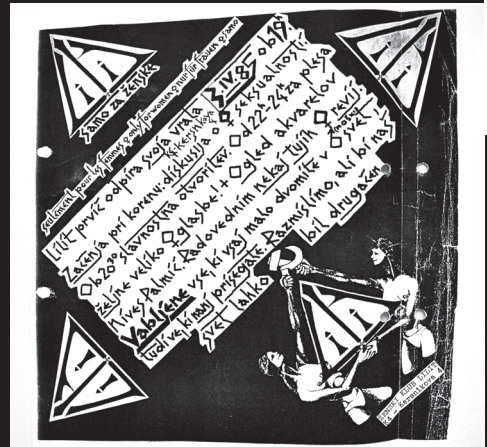 samo za ženske
seulement pour les femmes o only for women o nur für frauen o samo
Lilit prvič odpira svoja vrata
K4 Kersnikova
3.IV.85 ob 19
Začenja pri korenu: diskusija o seksualnosti
ob 20h slavnostna otvoritev. od 22-24h za plesa
željne veliko glasbe! + ogled akvarelov
Nives Palmić. Radovednim nekaj tujih revij!
Vabljene vse, ki vsaj malo dvomite v (moški) svet
tudi ve, ki nanj prisegate. Razmislimo, ali bi naš
svet lahko bil drugačen
ŽENSKI KLUB LILIT
K4 - Kersnikova 4